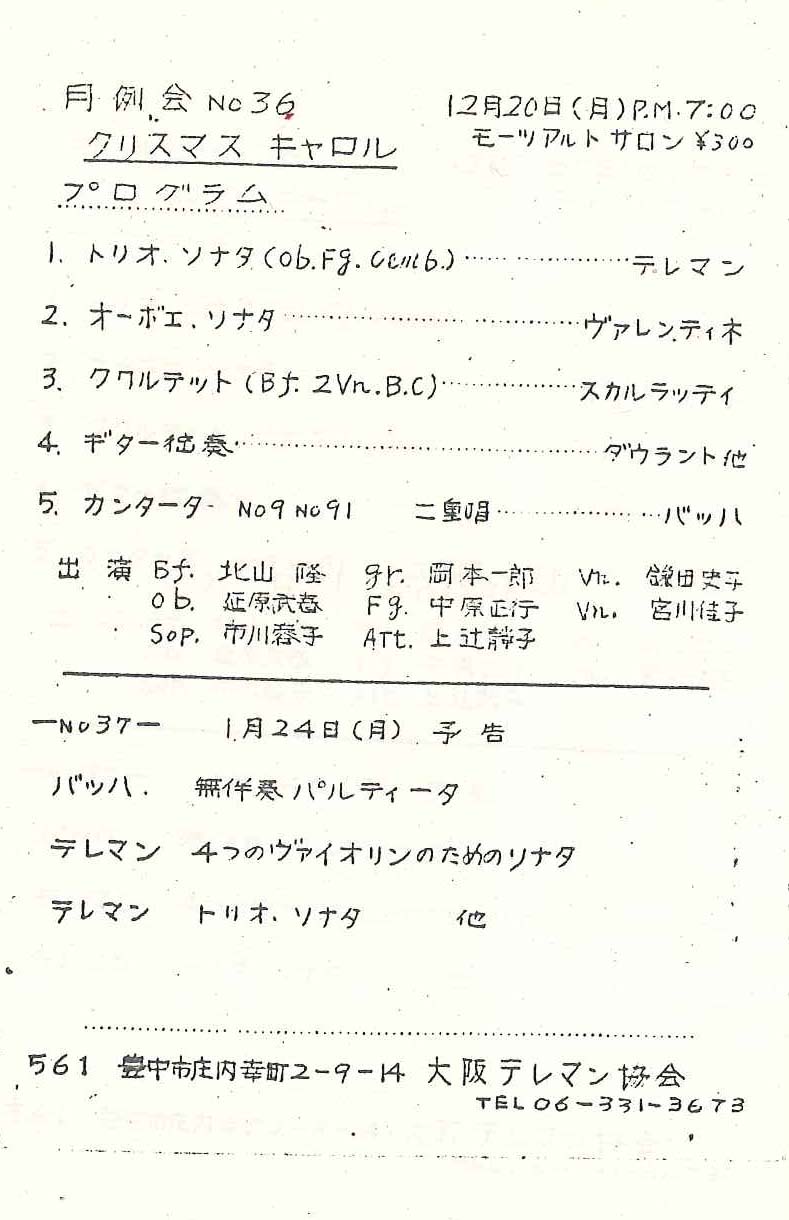 月例会 No 36
12月20日(月)P.M.7:00
クリスマス キャロル
モーツアルト サロン ¥300
プログラム
1. トリオ.ソナタ(Ob.Fg.Cemb.)‥‥‥‥‥‥テレマン
2. オーボエ.ソナタ‥‥‥‥‥‥‥‥ヴァレンティネ
3. クワルテット(Bf. 2Vn.B.C)‥‥‥‥‥スカルラッティ
4. ギター独奏‥‥‥‥‥‥‥‥‥‥ダウラント他
5. カンタータ- No9 No91 二重唱‥‥‥‥‥バッハ
出 演 Bf. 北山 隆 gr. 岡本一郎 Vn. 鎌田史子
Ob. 延原武春 Fg. 中原正行 Vn. 宮川佳子
Sop. 市川蓉子 Art. 上辻静子
—No37— 1月24日(月) 予告
バッハ. 無伴奏パルティータ
テレマン 4つのヴァイオリンのためのソナタ
テレマン トリオ.ソナタ 他
561 豊中市庄内幸町2-9-14 大阪テレマン協会
TEL 06-331-3673